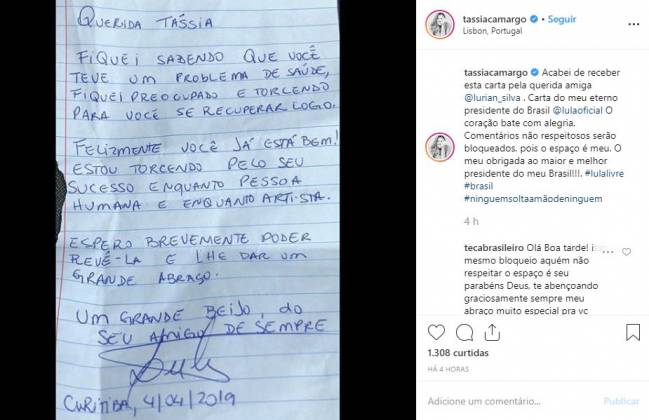 QUERIDA TÁSSIA
FIQUEI SABENDO QUE VOCÊ
TEVE UM PROBLEMA DE SAÚDE,
FIQUEI PREOCUPADO E TORCENDO
PARA VOCÊ SE RECUPERAR LOGO.
FELIZMENTE VOCÊ JÁ ESTÁ BEM!
ESTOU TORCENDO PELO SEU
SUCESSO ENQUANTO PESSOA
HUMANA E ENQUANTO ARTISTA.
ESPERO BREVEMENTE PODER
REVÊ-LA E LHE DAR UM
GRANDE ABRAÇO.
UM GRANDE BEIJO, do
SEU AMIGO DE SEMPRE
Lula
CURITIBA, 4/04/2019
tassiacamargo • Seguir
Lisbon, Portugal
tassiacamargo Acabei de receber
esta carta pela querida amiga
@lurian_silva . Carta do meu eterno
presidente do Brasil @lulaoficial O
coração bate com alegria.
Comentários não respeitosos serão
bloqueados, pois o espaço é meu. O
meu obrigada ao maior e melhor
presidente do meu Brasil!!!. #lulalivre
#brasil
#ninguemsoltaamãodeninguem
4 h
tecabrasileiro Olá Boa tarde!
mesmo bloqueio aquém não
respeitar o espaço é seu
parabéns Deus, te abençoando
graciosamente sempre meu
abraço muito especial pra vc
1.308 curtidas
HÁ 4 HORAS
Adicione um comentário...